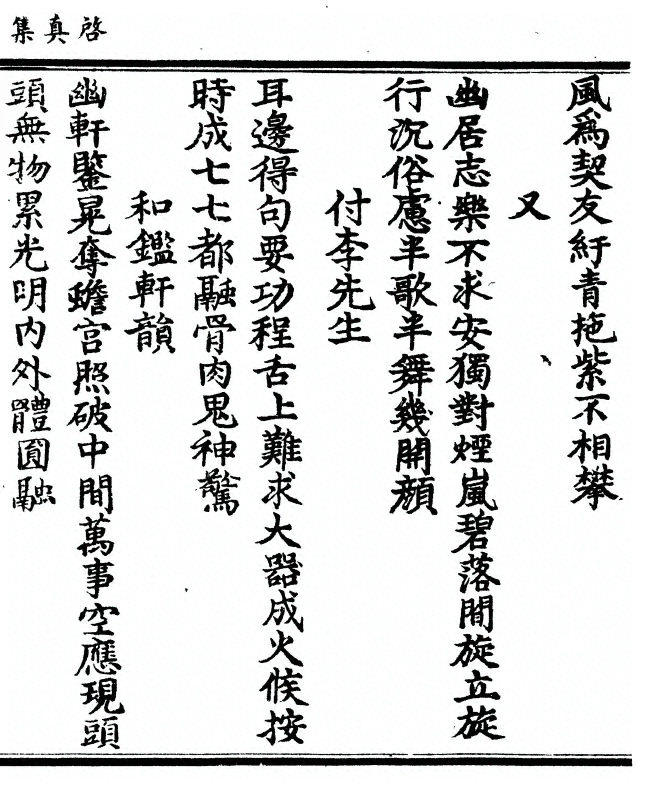 啓真集
風爲契友紆青拖紫不相攀
又
幽居志樂不求安獨對煙嵐碧落間旋立旋
行沉俗慮半歌半舞幾開顔
付李先生
耳邊得句要功程舌上難求大器成火候按
時成七七都融骨肉鬼神驚
和鑑軒韻
幽軒鑒晃奪蟾宫照破中間萬事空應現頭
頭無物累光明内外體圓融